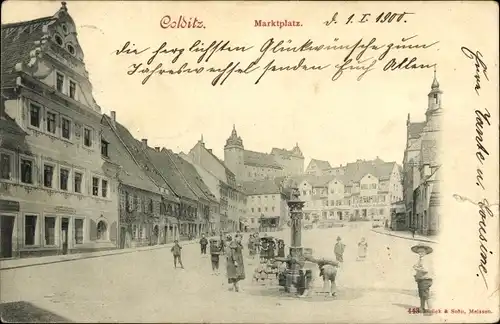 Colditz.
Marktplatz.
d. 1. I. 1900.
die herzlichsten Glückwünsche zum
Jahreswechsel senden Euch Allen
Eure Tante u. Cousine.
443
& Sohn, Meissen.